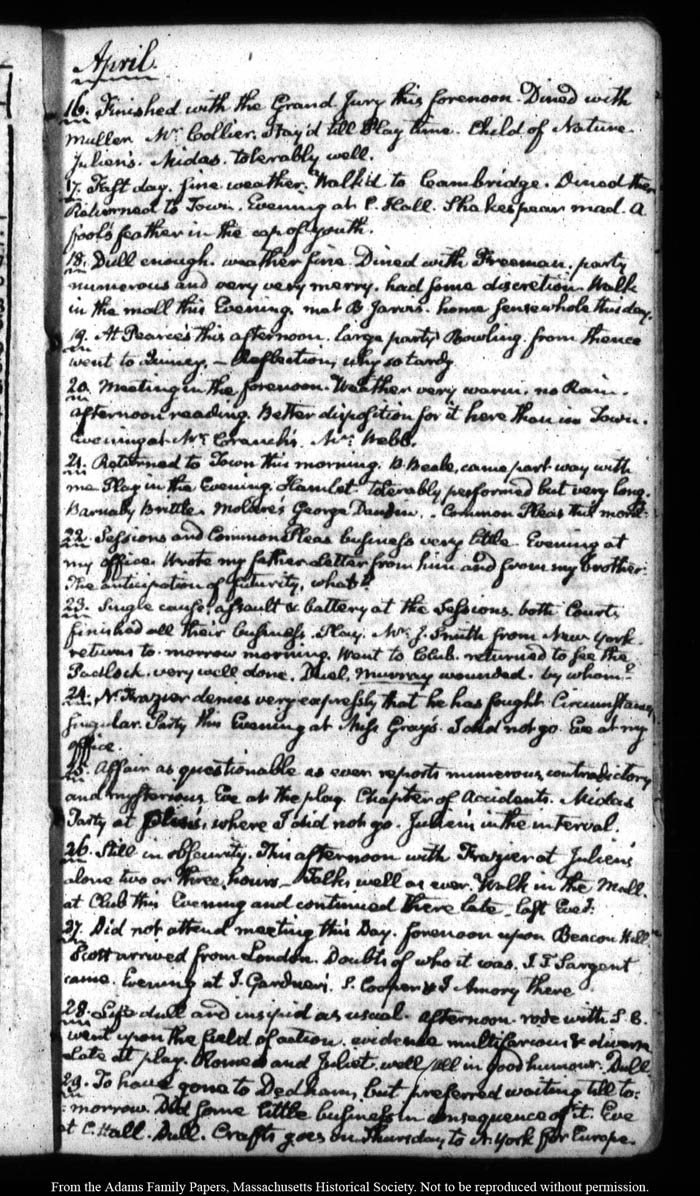 April.
16. Finished with the Grand Jury this forenoon. Dined with
Muller. Mr. Collier. Stay'd till Play time. Child of Nature.
Julien's. Midas. tolerably well.
17. Fast day. fine weather. Walk'd to Cambridge. Dined there
Returned to Town. Evening at C. Hall. Shakespear mad. A
fool's feather in the cap of youth.
18. Dull enough. weather fine. Dined with Freeman. party
numerous and very very merry. had some discretion. Walk
in the mall this Evening. met B Jarvis. home sense whole this day.
19. At Pearce's this afternoon. large party Bowling. from thence
went to Quincy. — Reflection, why so tardy
20. Meeting in the forenoon. Weather very warm. no Rain.
afternoon reading. Better disposition for it here than in Town.
Evening at Mr. Cranch's. Mrs. Webb.
21. Returned to Town this morning. B. Beale, came part way with
me Play in the Evening. Hamlet tolerably performed but very long.
Barnaby Brittle. Moliere's George Dandin. Common Pleas this
22. Sessions and Common Pleas business very little. Evening at
my office. Wrote my father. Letter from him and from my brother.
The anticipation of futurity, what?
23. Single cause, assault & battery at the Sessions. both Courts
finished all their business. Play. Mr. J. Smith from New York.
returns to-morrow morning. Went to Club. returned to see the
Padlock. very well done. Duel. Murray wounded. by whom?
24. N. Frazier denies very expressly that he has fought. Circumstances
singular. Party this Evening at Miss Gray's. I did not go. Eve at my
office.
25. Affair as questionable as ever reports numerous, contradictory
and mysterious. Eve at the play. Chapter of Accidents. Midas
Party at where I did not go. Julien's in the interval.
26. Still in obscurity. This afternoon with Frazier at Julien's
alone two or three hours — Talks well as ever. Walk in the Mall.
at Club this Evening and continued there late.
27. Did not attend meeting this Day. forenoon upon Beacon Hill
Scott arrived from London. Doubts of who it was. Sargent
came. Evening at J. Gardner's. S. Cooper & J Amory there.
28. Life dull and insipid as usual. afternoon rode with S. B.
went upon the field of action. evidence multifarious & diverse
Late at play. Romeo and Juliet. well still in good humour. Dull
29. To have gone to Dedham, but preferred waiting till to:
morrow. Did some little business in consequence of it. Eve
at C. Hall. Dull. Crafts goes on Thursday to N. York for Europe.
From the Adams Family Papers, Massachusetts Historical Society. Not to be reproduced without permission.